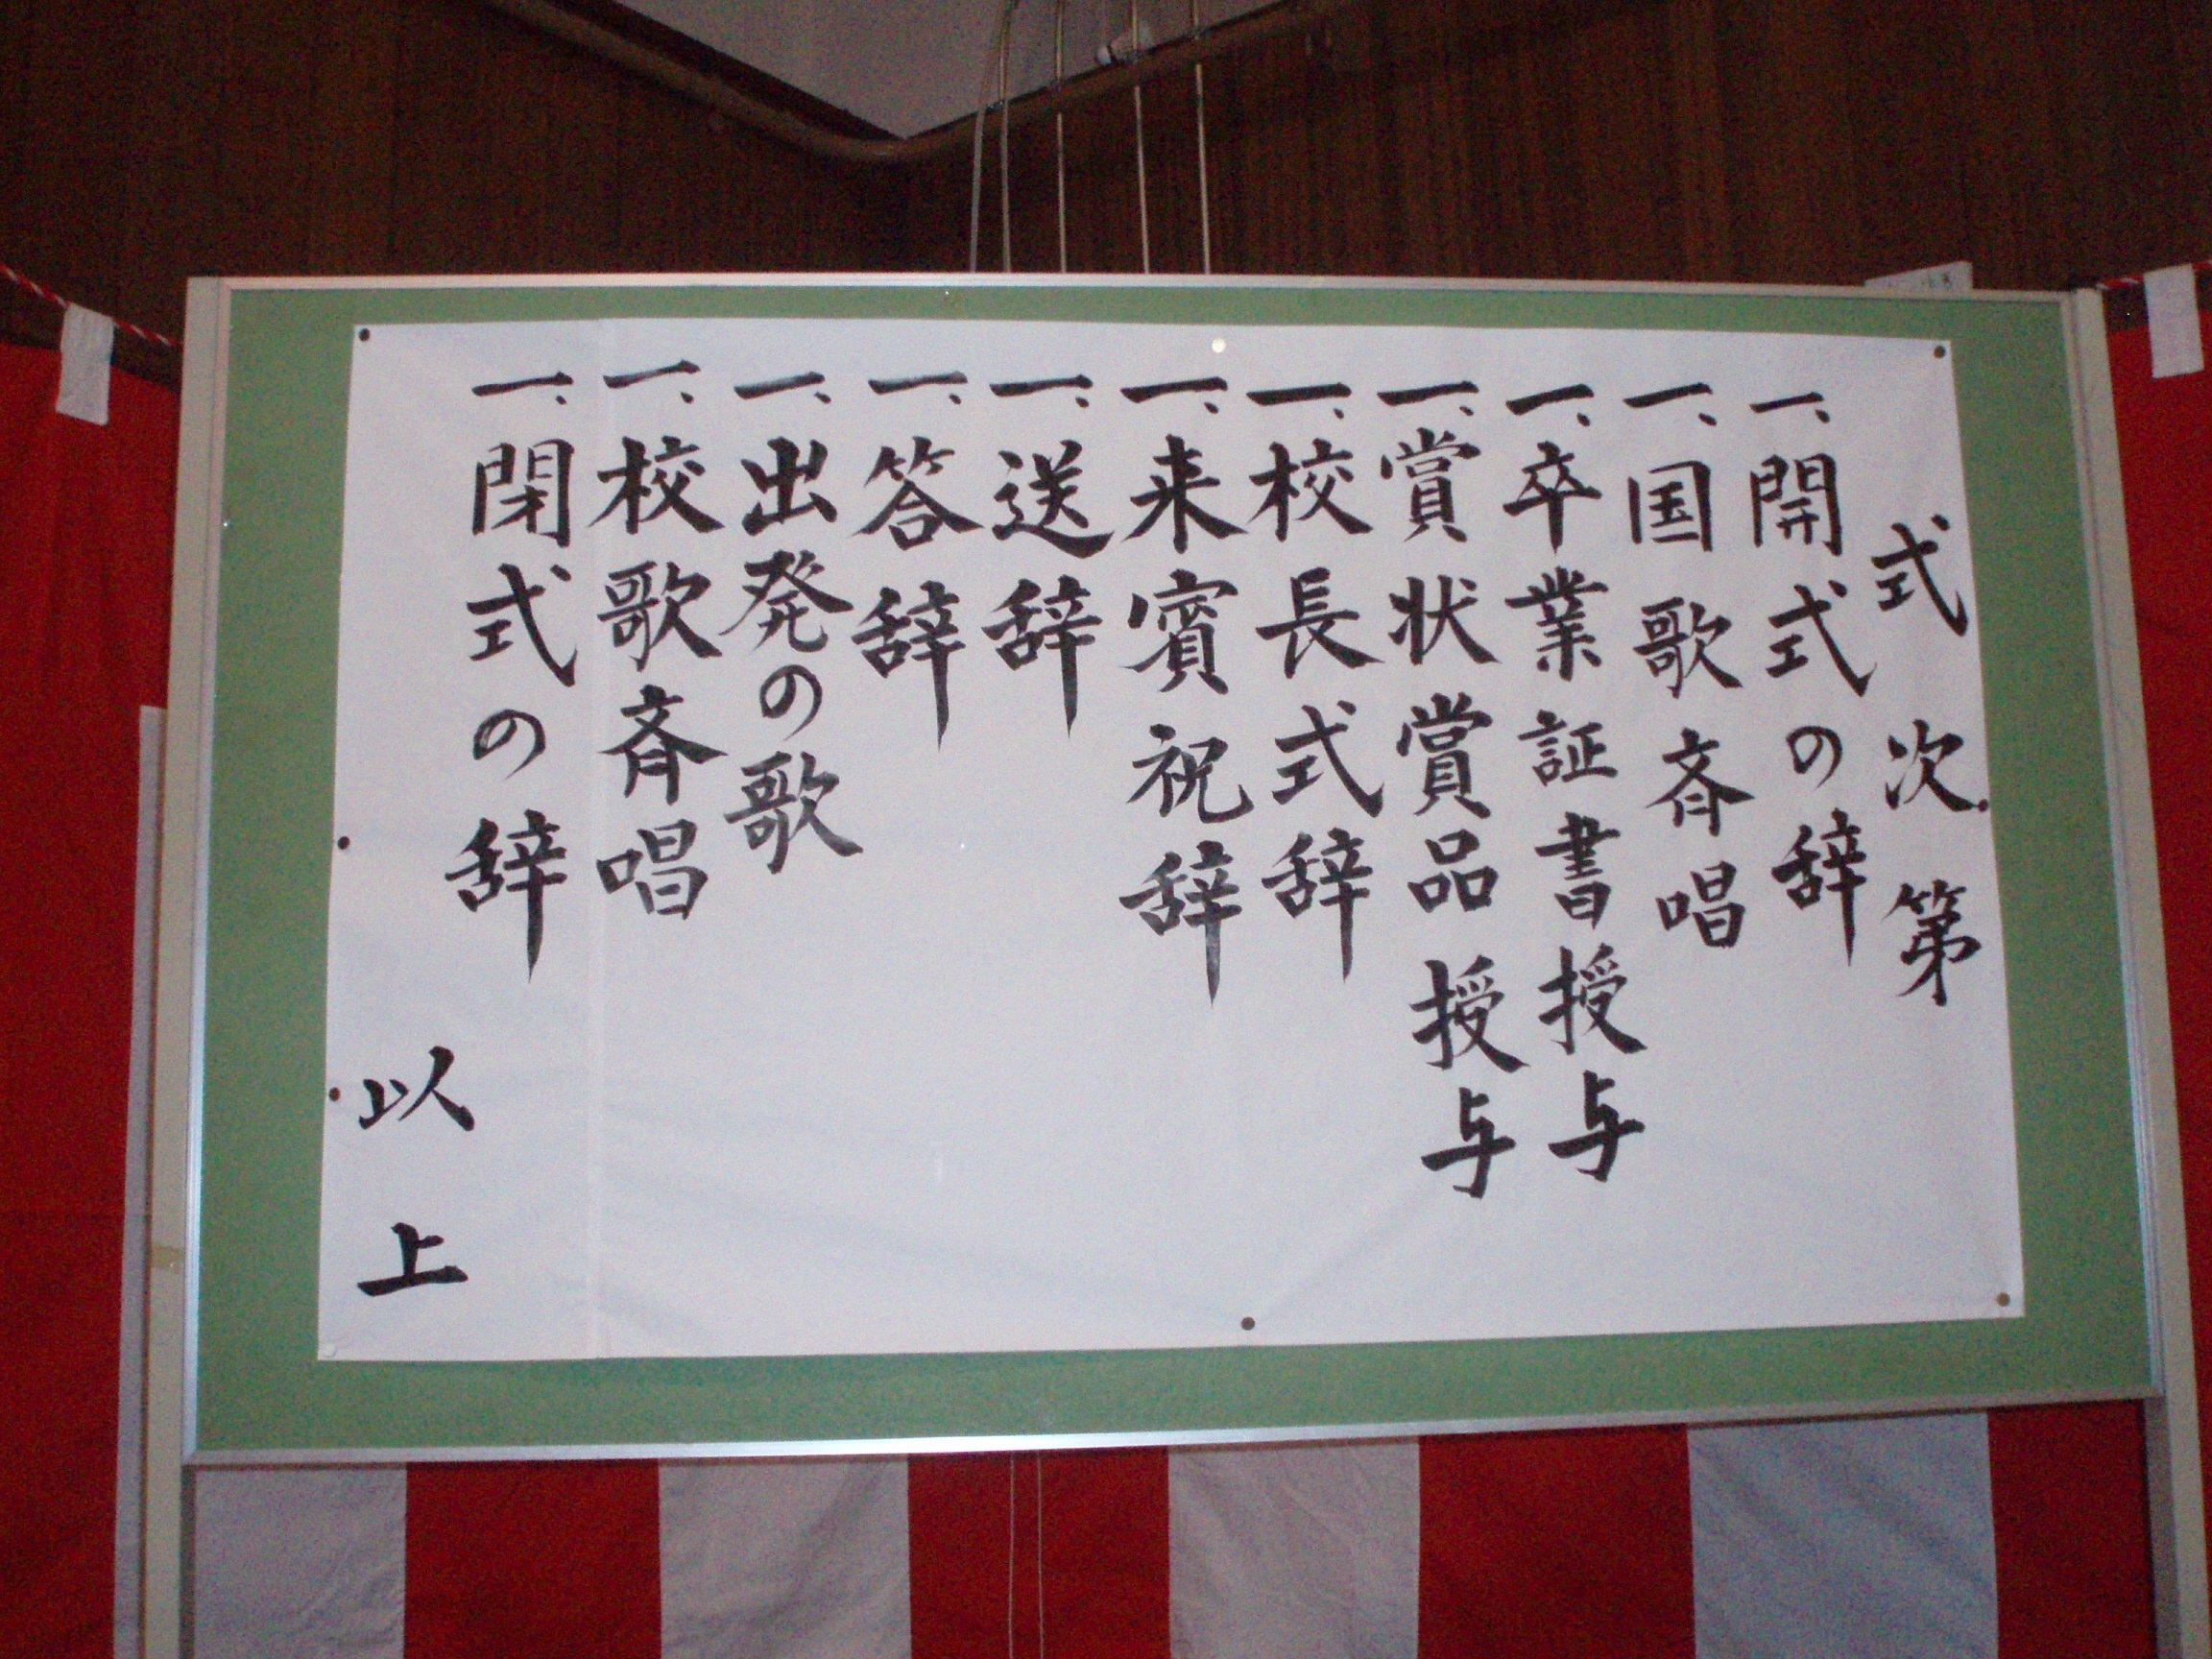 式次第
一、開式の辞
一、国歌斉唱
一、卒業証書授与
一、賞状賞品授与
一、校長式辞
一、来賓祝辞
一、送辞
一、答辞
一、出発の歌
一、校歌斉唱
一、閉式の辞
以上